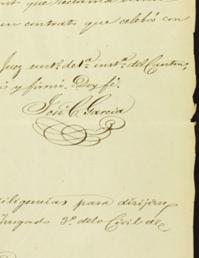 que reclama
un contrato que celebró con
Juez de 1ª inst.ª del Centro,
y firmó. Doy fé.
José C. Garcia
diligencias para
Juzgado 3º de lo Civil de